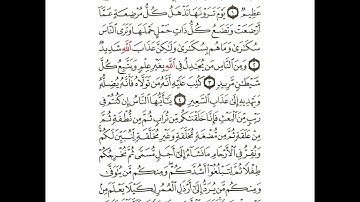 عَظِيمٌ ١ يَوْمَ تَرَوْنَهَا تَذْهَلُ كُلُّ مُرْضِعَةٍ عَمَّا
أَرْضَعَتْ وَتَضَعُ كُلُّ ذَاتِ حَمْلٍ حَمْلَهَا وَتَرَى النَّاسَ
سُكَٰرَىٰ وَمَا هُم بِسُكَٰرَىٰ وَلَٰكِنَّ عَذَابَ اللَّهِ شَدِيدٌ
٢ وَمِنَ النَّاسِ مَن يُجَٰدِلُ فِي اللَّهِ بِغَيْرِ عِلْمٍ وَيَتَّبِعُ كُلَّ
شَيْطَٰنٍ مَّرِيدٍ ٣ كُتِبَ عَلَيْهِ أَنَّهُ مَن تَوَلَّاهُ فَأَنَّهُ يُضِلُّهُ
وَيَهْدِيهِ إِلَىٰ عَذَابِ السَّعِيرِ ٤ يَٰٓأَيُّهَا النَّاسُ إِن كُنتُمْ
فِي رَيْبٍ مِّنَ الْبَعْثِ فَإِنَّا خَلَقْنَٰكُم مِّن تُرَابٍ ثُمَّ مِن نُّطْفَةٍ ثُمَّ
مِنْ عَلَقَةٍ ثُمَّ مِن مُّضْغَةٍ مُّخَلَّقَةٍ وَغَيْرِ مُخَلَّقَةٍ لِّنُبَيِّنَ لَكُمْ
وَنُقِرُّ فِي الْأَرْحَامِ مَا نَشَآءُ إِلَىٰٓ أَجَلٍ مُّسَمًّى ثُمَّ نُخْرِجُكُمْ
طِفْلًا ثُمَّ لِتَبْلُغُوٓا أَشُدَّكُمْ وَمِنكُم مَّن يُتَوَفَّىٰ
وَمِنكُم مَّن يُرَدُّ إِلَىٰٓ أَرْذَلِ الْعُمُرِ لِكَيْلَا يَعْلَمَ مِن